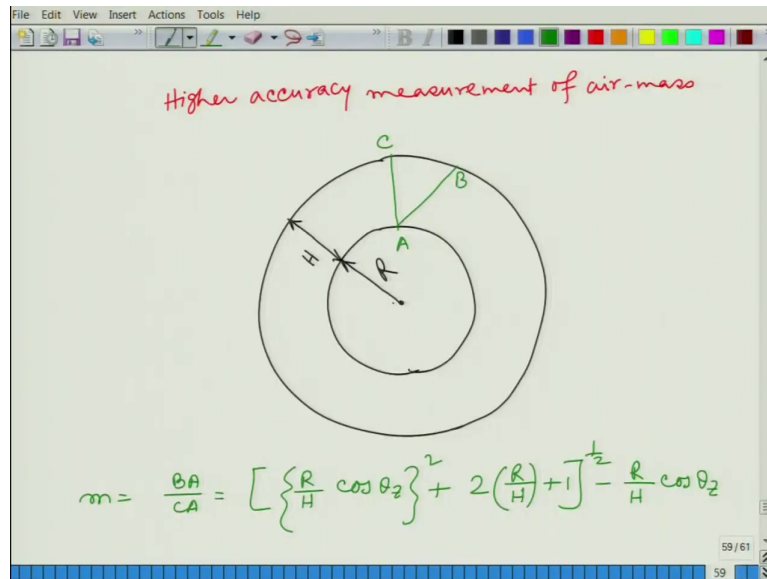 File Edit View Insert Actions Tools Help
B I
Higher accuracy measurement of air-mass
C
B
A
H
R
m = BA/CA = [{R/H cos θz}² + 2(R/H) + 1]^½ - R/H cos θz
59/61
59